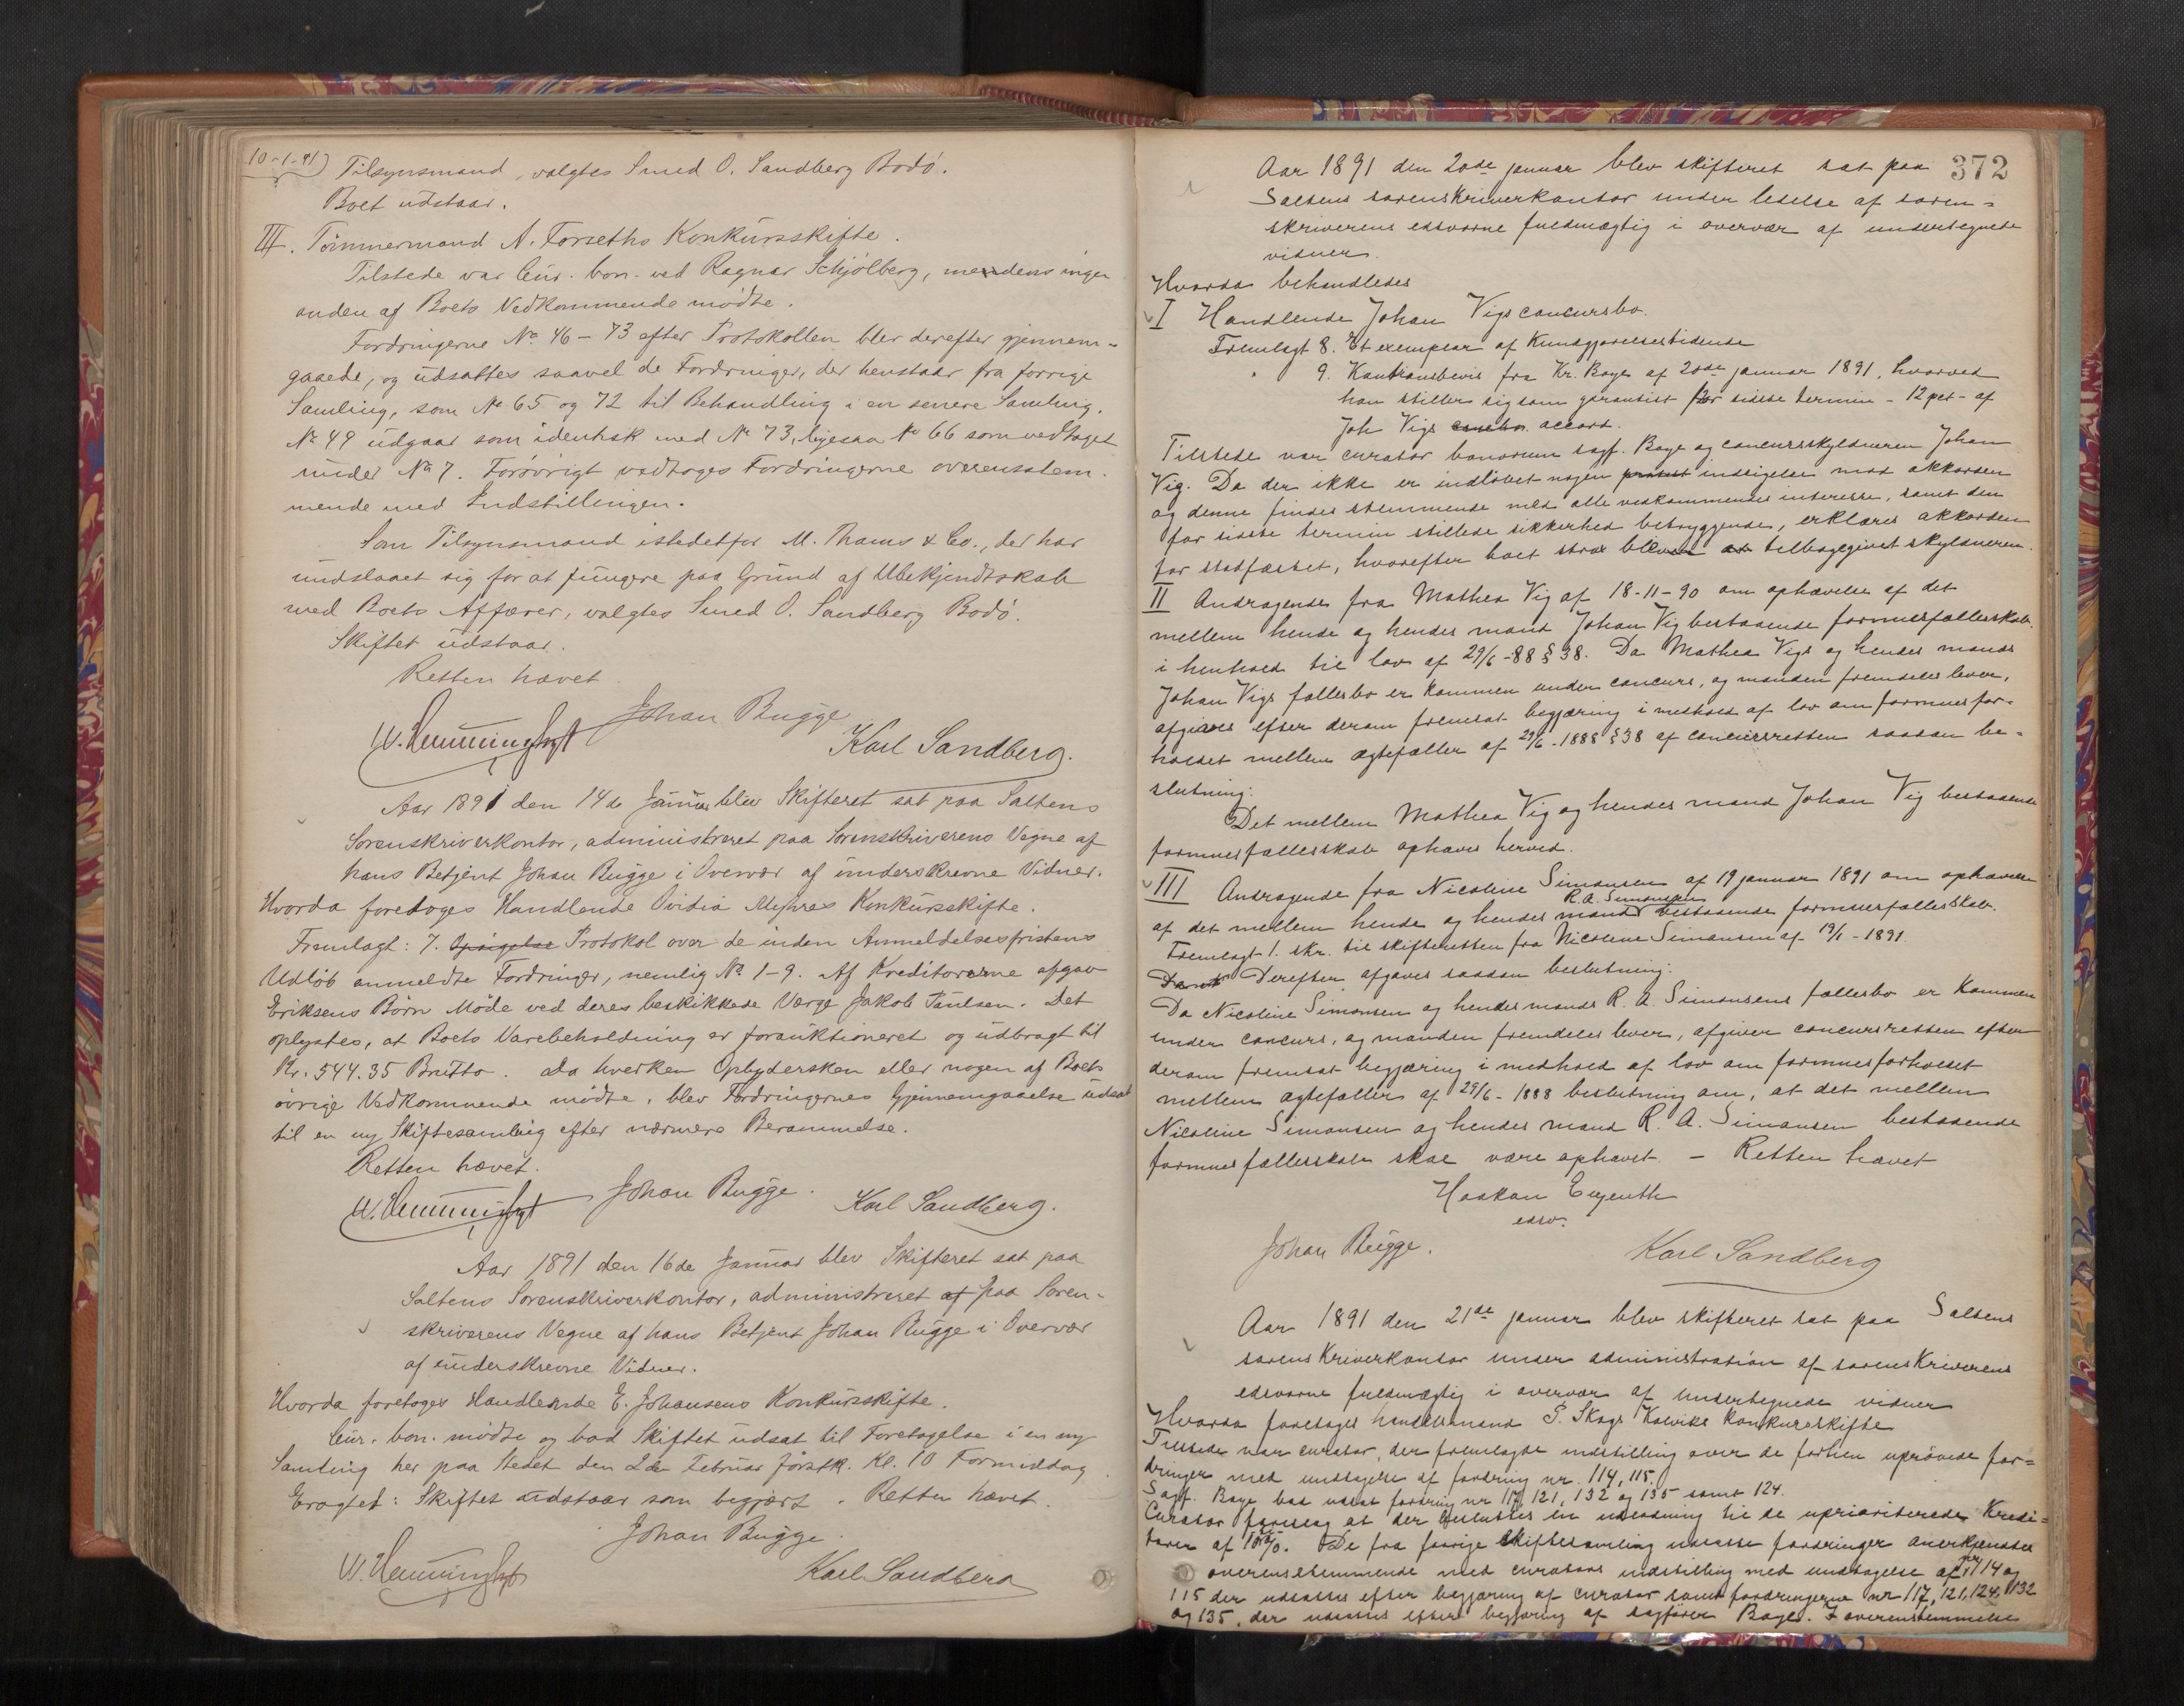 10-1-91) Tilsynsmand, valgtes Smed O. Sandberg Bodö.
Boet udstaar.
III. Tömmermand A. Forseths Konkursskifte.
Tilstede var Cur. bon. ved Ragnar Schjölberg, mendens ingen
anden af Boets Vedkommende mödte.
Fordringerne No 46 - 73 efter Protokollen blev derefter gjennem-
gaaede, og udsattes saavel de Fordringer, der henstaar fra forrige
Samling, som No 65 og 72 til Behandling i en senere Samling.
No 49 udgaar som identisk med No 73, ligesaa No 66 som vedtaget
under No 7. Forövrigt vedtoges Fordringerne overensstem-
mende med Indstillingen.
Som Tilsynsmand istedetfor M. Thams & Co., der har
undslaaet sig for at fungere paa Grund af Ubekjendtskab
med Boets Affærer, valgtes Smed O. Sandberg Bodö.
Skiftet udstaar.
Retten hævet.
Johan Bugge
W. Hemmingfyt
Karl Sandberg.
Aar 1891 den 14de Januar blev Skifteret sat paa Saltens
Sorenskriverkontor, administreret paa Sorenskriverens Vegne af
hans Betjent Johan Bugge i Overvær af underskrevne Vidner.
Hvorda foretoges Handlende Ovidia Myhres Konkursskifte.
Fremlagt: 7. Protokol over de inden Anmeldelsesfristens
Udlöb anmeldte Fordringer, nemlig No 1-9. Af Kreditorerne afgav
Eriksens Börn Möde ved deres beskikkede Værge Jakob Paulsen. Det
oplystes, at Boets Varebeholdning er forauktioneret og udbragt til
Kr. 544.35 Brutto. Da hverken Opbydersken eller nogen af Boets
övrige Vedkommende mödte, blev Fordringernes Gjennemgaaelse udsat
til en ny Skiftesamling efter nærmere Berammelse.
Retten hævet.
Johan Bugge.
W. Hemmingfyt
Karl Sandberg.
Aar 1891 den 16de Januar blev Skifteret sat paa
Saltens Sorenskriverkontor, administreret af paa Soren-
skriverens Vegne af hans Betjent Johan Bugge i Overvær
af underskrevne Vidner.
Hvorda foretoges Handlende E. Johansens Konkursskifte.
Cur. bon. mödte og bad Skiftet udsat til Foretagelse i en ny
Samling her paa Stedet den 2den Februar förstk. Kl. 10 Formiddag.
Eragtet: Skiftet udstaar som begjært. Retten hævet.
Johan Bugge.
W. Hemmingfyt
Karl Sandberg
372
Aar 1891 den 20de januar blev skifteret sat paa
Saltens sorenskriverkontor under ledelse af soren-
skriverens edsvorne fuldmægtig i overvær af undertegnede
vidner.
Hvorda behandledes
I Handlende Johan Vigs concursbo.
Fremlagt 8. Et exemplar af Kundgjørelsestidende
" 9. Kautionsbevis fra Kr. Bage af 20de januar 1891, hvorved
han stiller sig som garantist for sidste termin - 12 pct - af
Joh Vigs accord.
Tilstede var curator bonorum sagf. Bage og concursskyldneren Johan
Vig. Da der ikke er indløbet nogen protest indsigelse mod akkorden
og denne findes stemmende med alle vedkommendes interesse, samt den
for sidste termin stillede sikkerhed betryggende, erklæres akkorden
for stadfæstet, hvorefter boet strax blev tilbagegivet skyldneren.
II Andragende fra Mathea Vig af 18-11-90 om ophævelse af det
mellem hende og hendes mand Johan Vig bestaaende formuesfællesskab.
i henhold til lov af 29/6-88 § 38. Da Mathea Vigs og hendes mands
Johan Vigs fællesbo er kommen under concurs, og manden fremdeles lever,
afgives efter derom fremsat begjæring i medhold af lov om formuesfor-
holdet mellem ægtefæller af 29/6-1888 § 38 af concursretten saadan be-
slutning:
Det mellem Mathea Vig og hendes mand Johan Vig bestaaende
formuesfællesskab ophæves herved.
III Andragende fra Nicoline Simonsen af 19 januar 1891 om ophævelse
R.A. Simonsen
af det mellem hende og hendes mand bestaaende formuesfællesskab.
Fremlagt 1. skr. til skifteretten fra Nicoline Simonsen af 19/1-1891.
Derefter afgaves saadan beslutning:
Da Nicoline Simonsen og hendes mands R. A. Simonsens fællesbo er kommen
under concurs, og manden fremdeles lever, afgiver concursretten efter
derom fremsat begjæring i medhold af lov om formuesforholdet
mellem ægtefæller af 29/6-1888 beslutning om, at det mellem
Nicoline Simonsen og hendes mand R. A. Simonsen bestaaende
formuesfællesskab skal være ophævet. - Retten hævet
Haakon
edsv.
Johan Bugge.
Karl Sandberg
Aar 1891 den 21de januar blev skifteret sat paa Saltens
sorenskriverkontor under administration af sorenskriverens
edsvorne fuldmægtig i overvær af undertegnede vidner
Hvorda foretoges handelsmand P. Skogs Kalvik konkursskifte
Tilstede var curator, der fremlagde indstilling over de forhen uprøvede for-
dringer med undtagelse af fordring nr. 114, 115.
Sagf. Bage bad udsat fordring nr 117, 121, 132 og 135 samt 124.
Curator foreslog at der besluttes en udlodning til de uprioriterede Kredi-
torer af 10%. De fra forrige skiftesamling udsatte fordringer anerkjendtes
overensstemmende med curators indstilling med undtagelse af nr 114 og
115 der udsattes efter begjæring af curator samt fordringerne nr 117, 121, 124, 132
og 135, der udsattes efter begjæring af sagfører Bage. I overensstemmelse